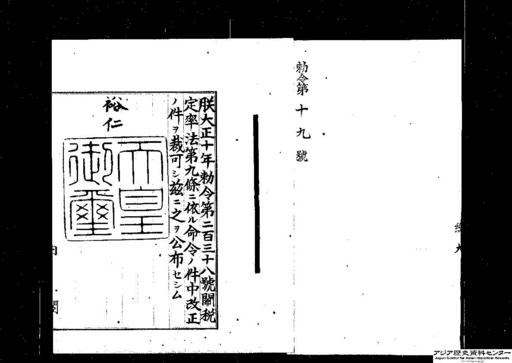 勅令第十九號
朕大正十年勅令第二百三十八號關税
定率法第九條ニ依ル命令ノ件中改正
ノ件ヲ裁可シ茲ニ之ヲ公布セシム
裕仁
天皇
御璽
内閣
アジア歴史資料センター
Japan Center for Asian Historical Records